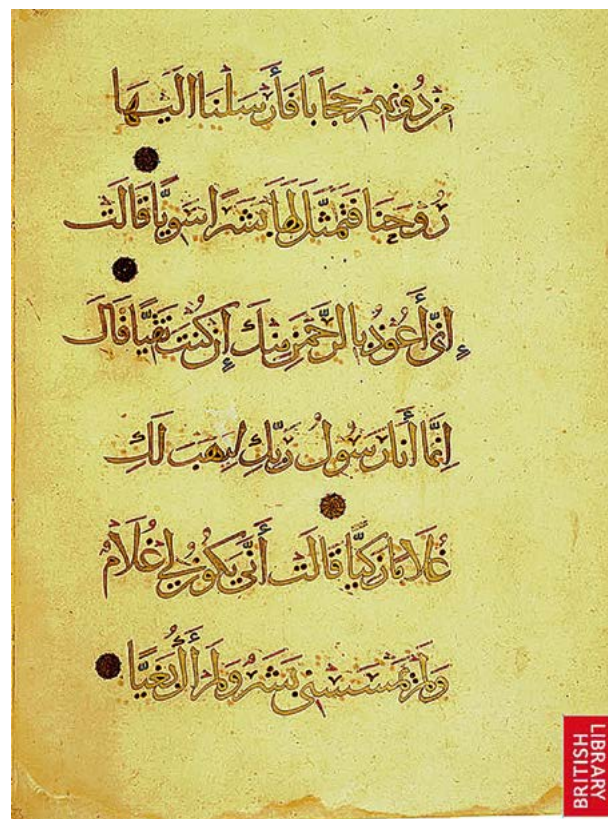 مِن دُونِهِمْ حِجَابًا فَأَرْسَلْنَا إِلَيْهَا
رُوحَنَا فَتَمَثَّلَ لَهَا بَشَرًا سَوِيًّا قَالَتْ
إِنِّي أَعُوذُ بِالرَّحْمَنِ مِنْكَ إِنْ كُنْتَ تَقِيًّا قَالَ
إِنَّمَا أَنَا رَسُولُ رَبِّكِ لِيَهَبَ لَكِ
غُلَامًا زَكِيًّا قَالَتْ أَنَّى يَكُونُ لِي غُلَامٌ
وَلَمْ يَمْسَسْنِي بَشَرٌ وَلَمْ أَكُ بَغِيًّا
BRITISH
LIBRARY